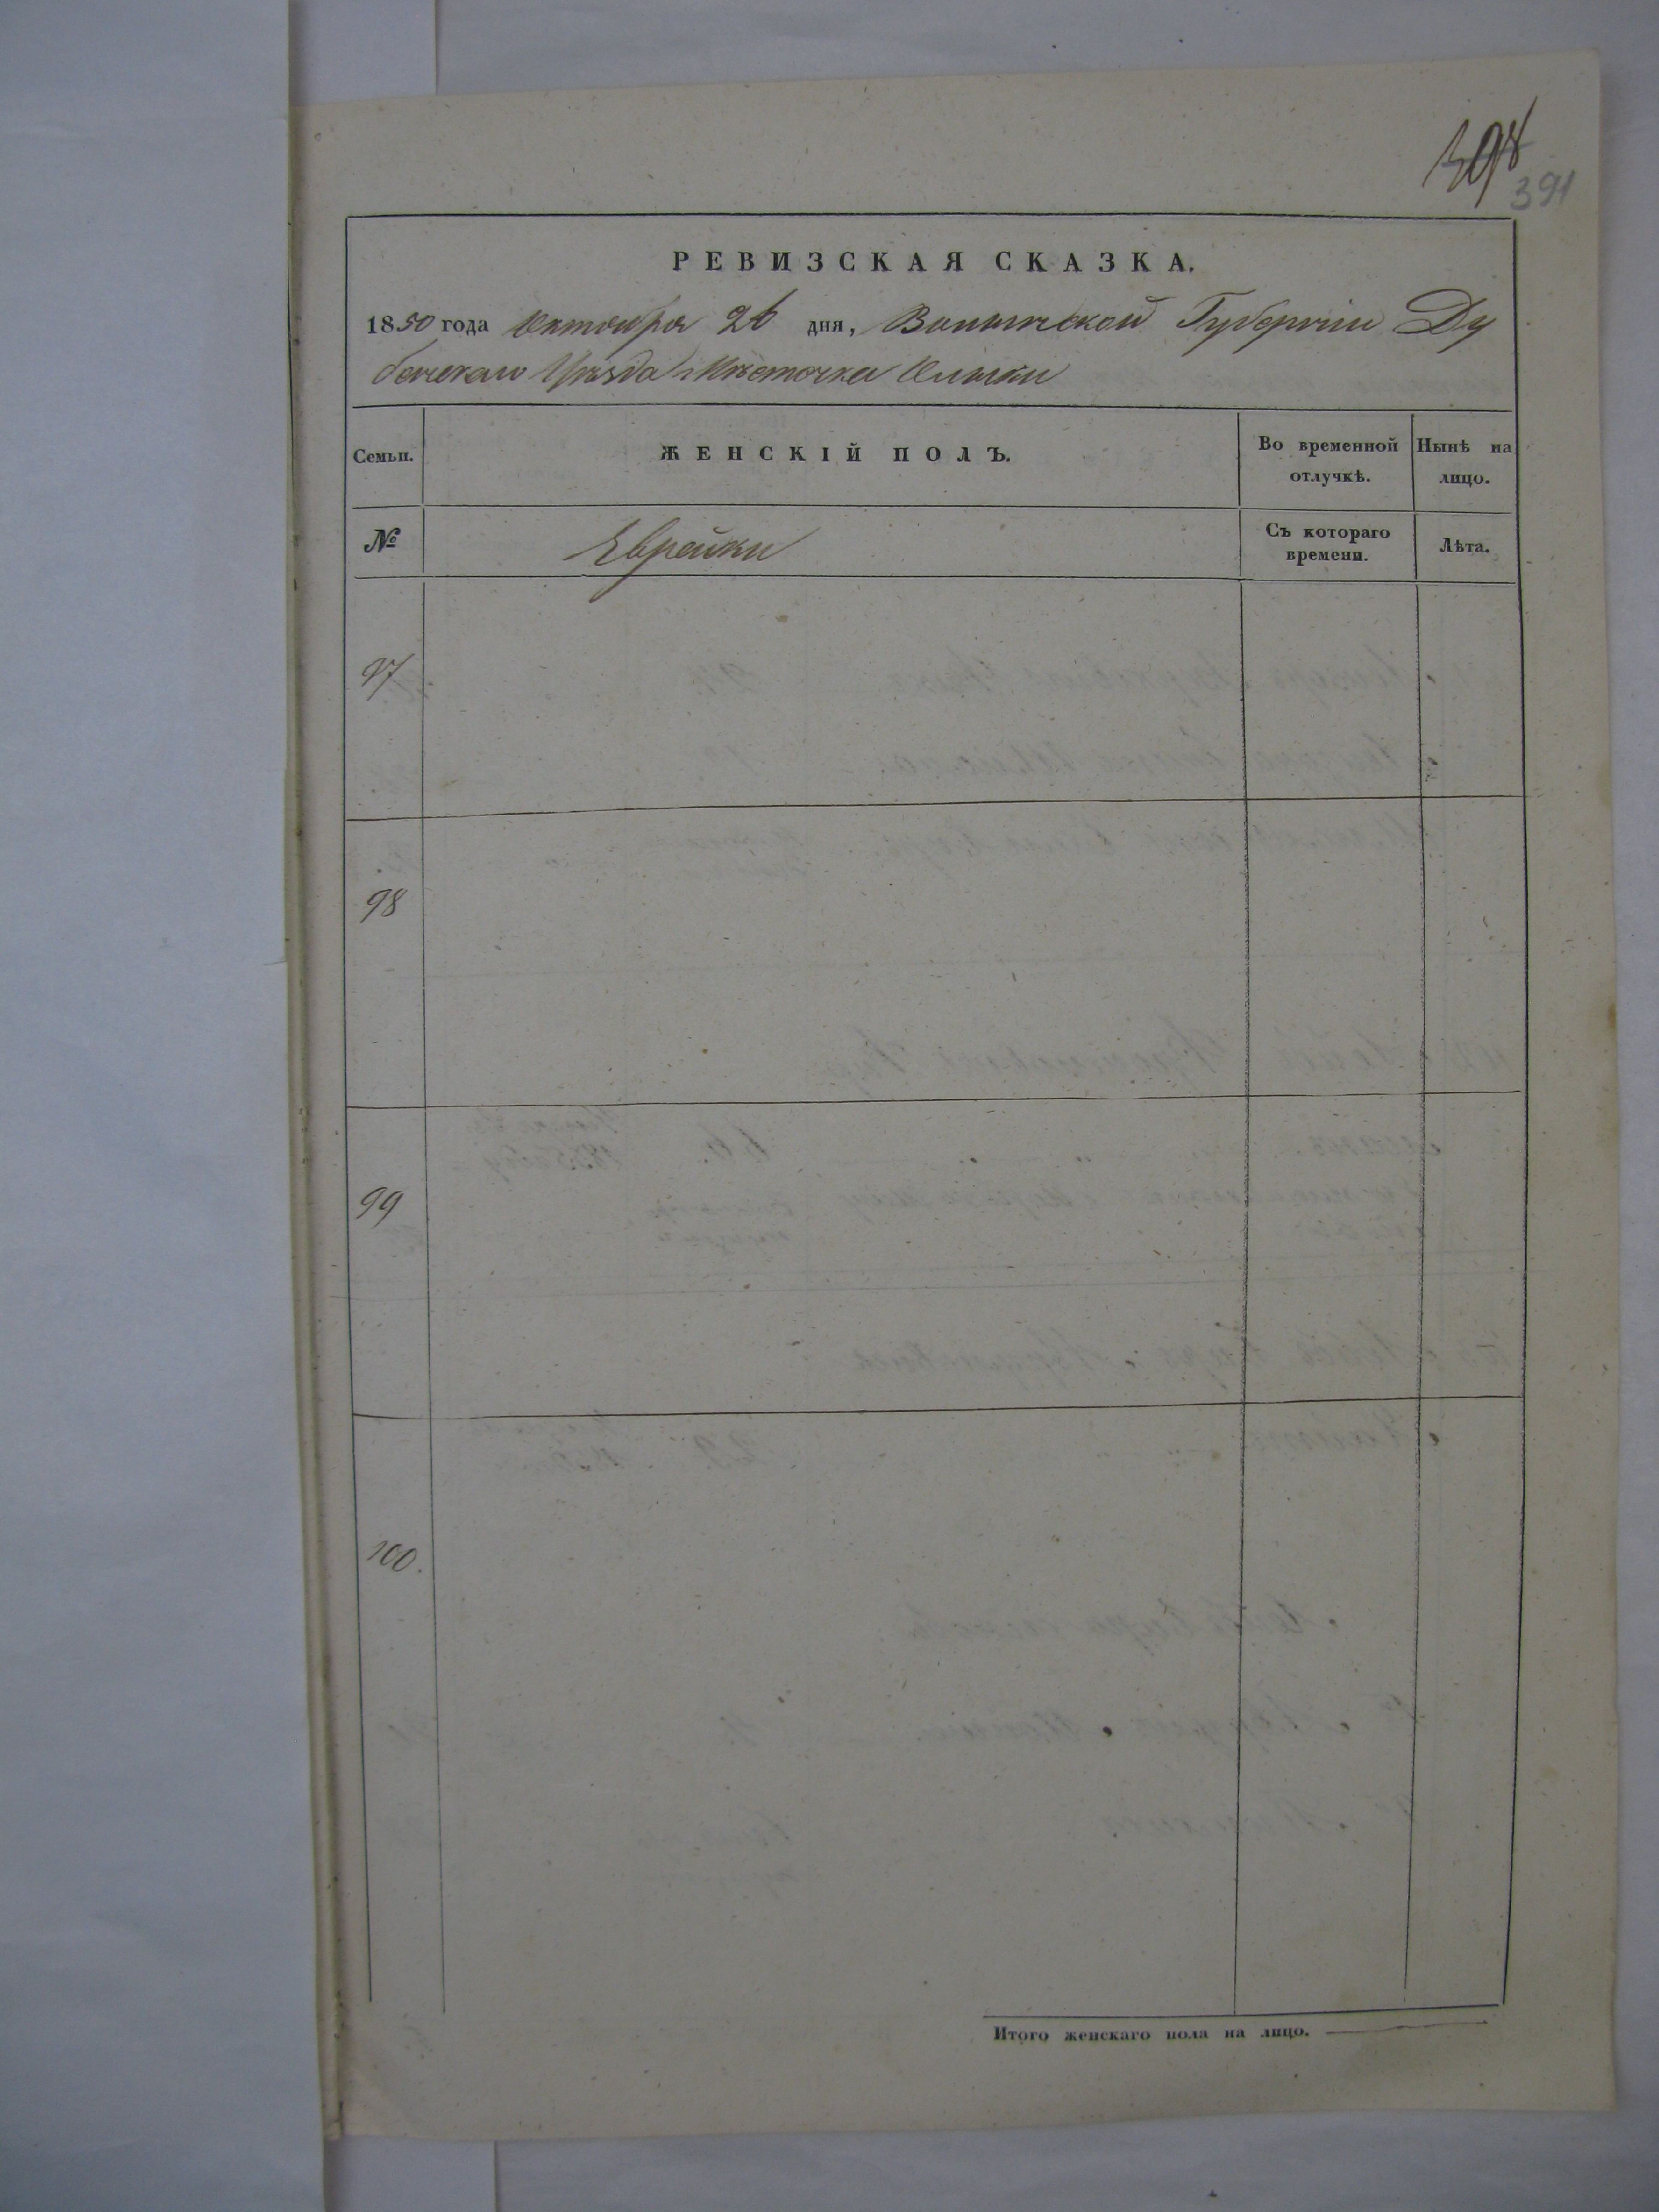 398
391
РЕВИЗСКАЯ СКАЗКА.
1850 года Октября 26 дня, Волынской Губерніи Ду
бенскаго Уѣзда Мѣстечка Олыки
Семьи.
ЖЕНСКІЙ ПОЛЪ.
Во временной отлучкѣ.
Нынѣ на лицо.
№
Еврейки
Съ котораго времени.
Лѣта.
97
98
99
100.
Итого женскаго пола на лицо.